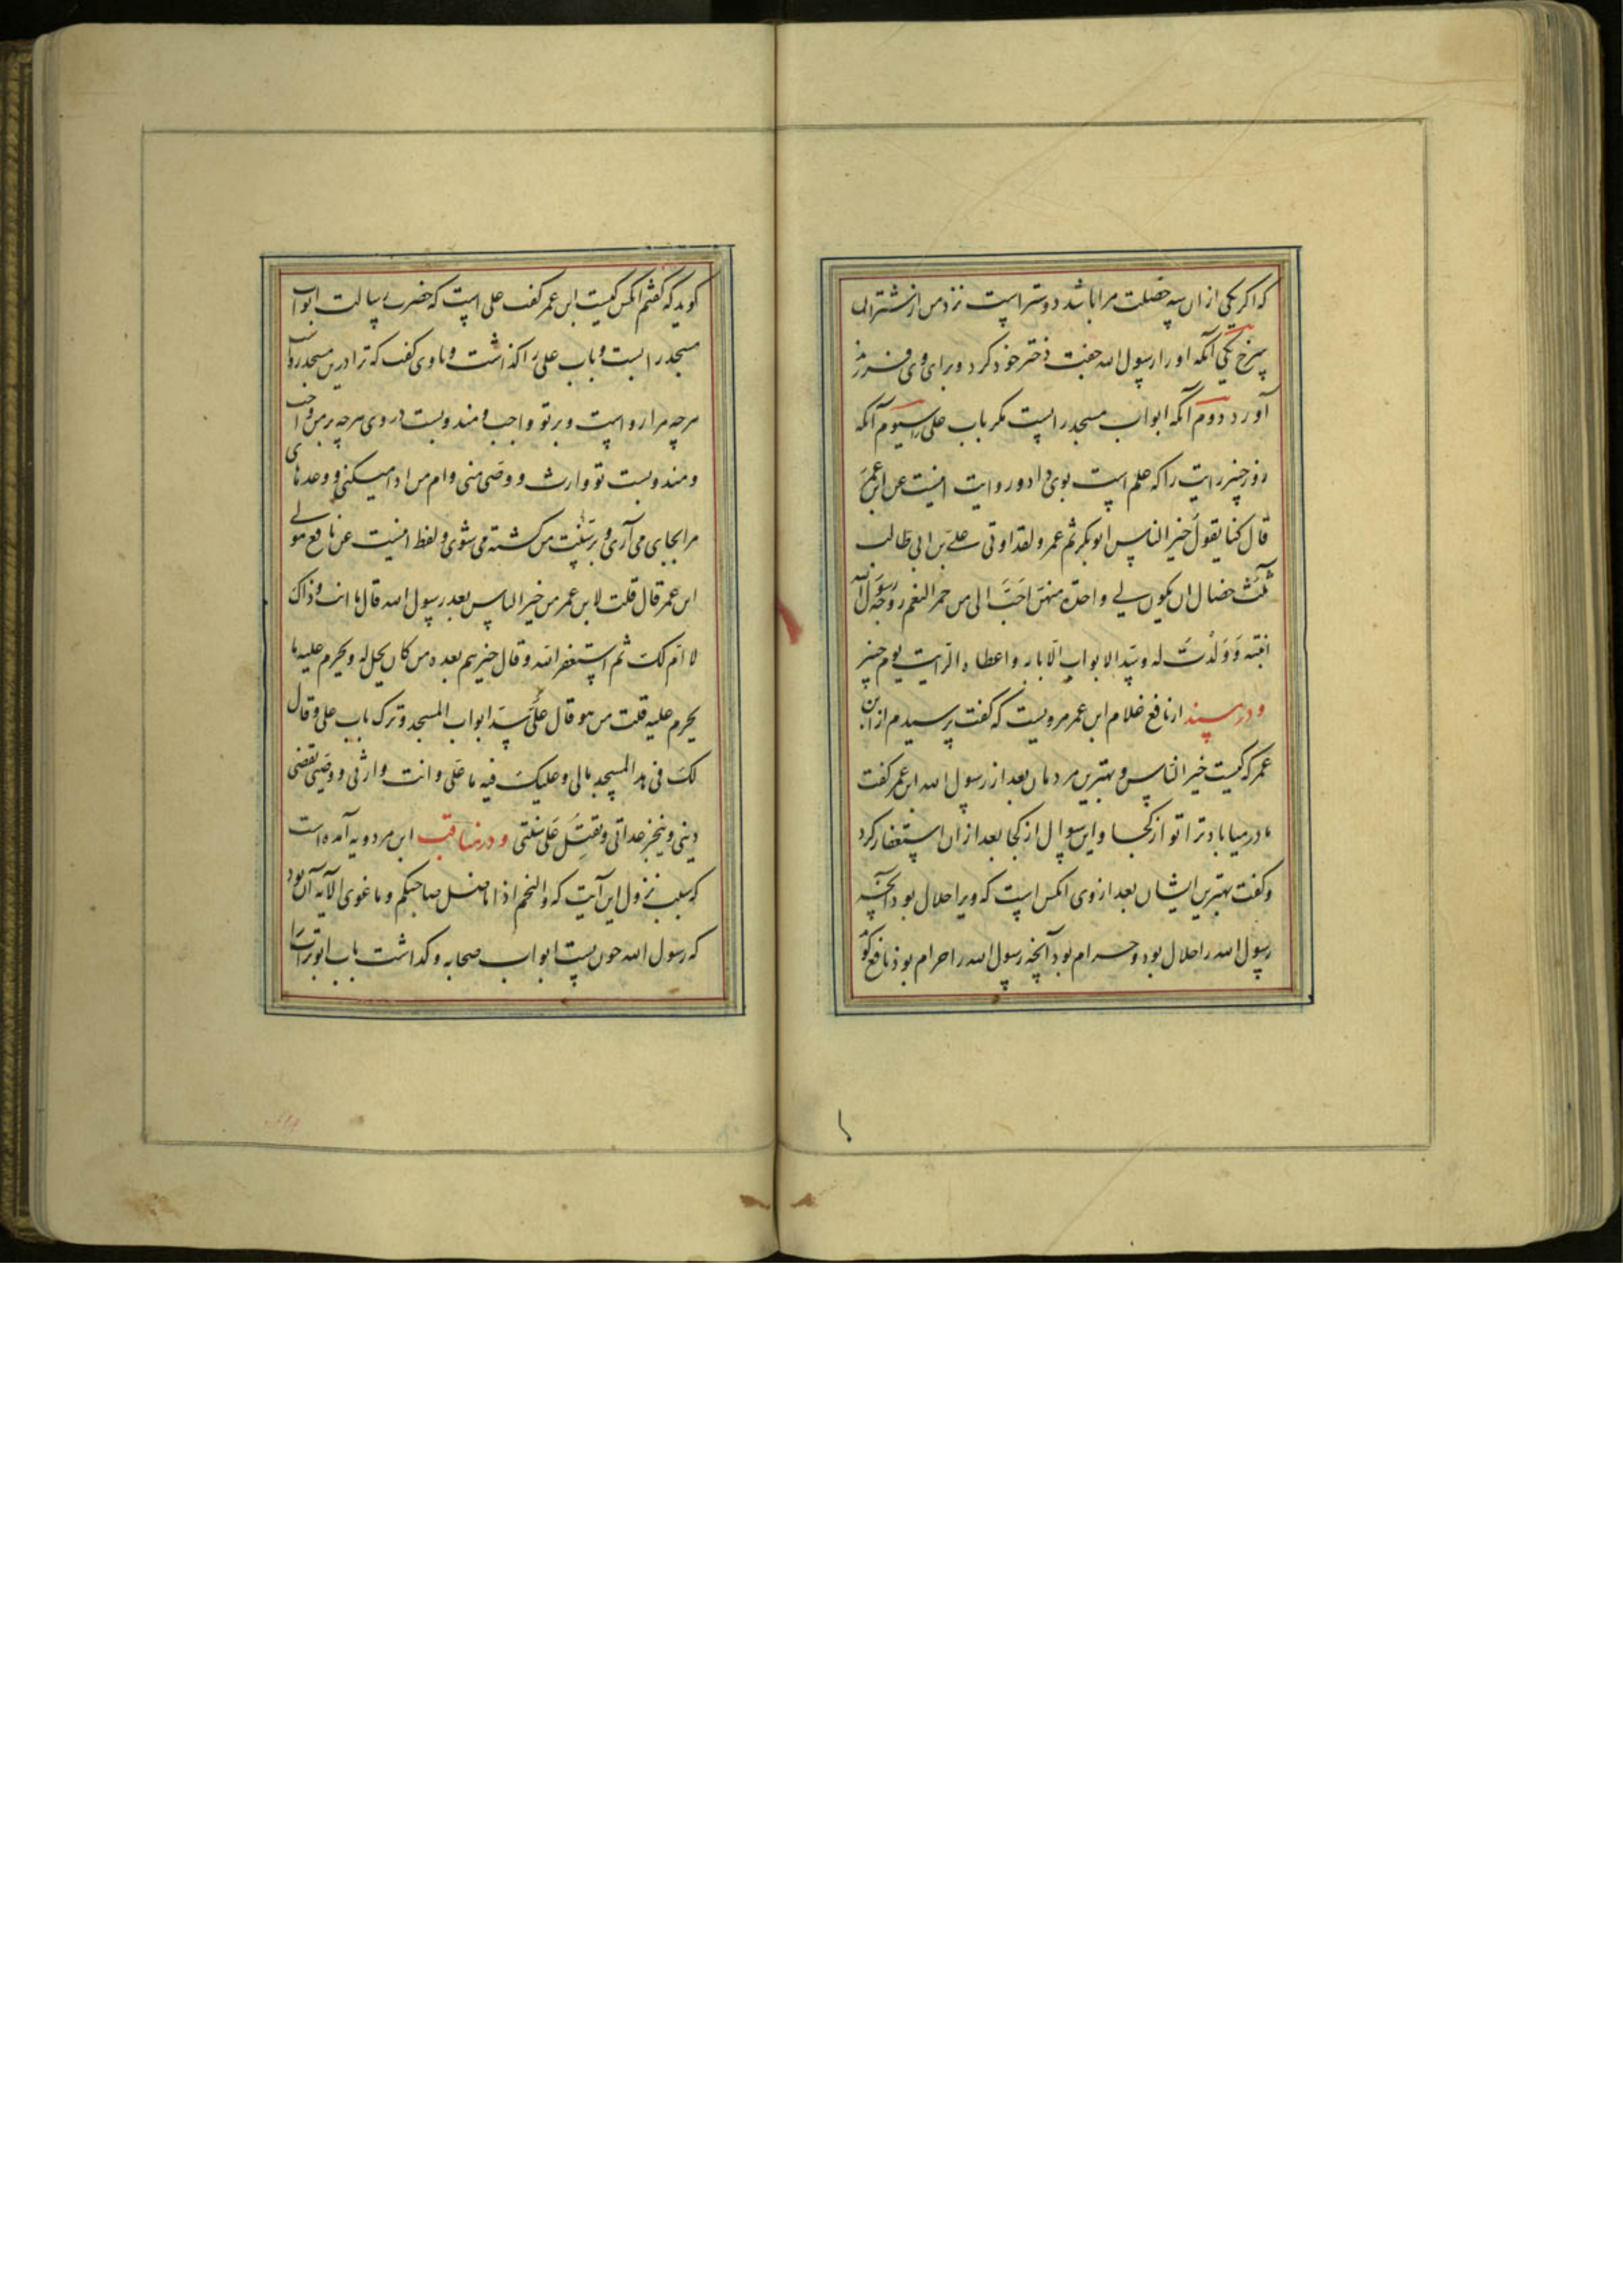 که اکر یکی از ان سه خصلت مرا باشد دوستر است نزد من از شتران
سرخ یکی آنکه او را رسول الله جفت دختر خود کرد و برای وی فرزند
آورد دوم آنکه ابواب مسجد را بست مکر باب علی را سیوم آنکه
روز خیبر رایت را که علم است بوی داد و روایت اینست عن ابن عمر
قال کنا یقول خیر الناس ابو بکر ثم عمر و لقد اوتی علی بن ابی طالب
ثلث خصال لان یکون لی واحدة منهن احب الی من حمر النعم زوجه رسول الله
ابنته و ولدت له و سد الابواب الا بابه و اعطاه الرایت یوم خیبر
و در مسند از نافع غلام ابن عمر مرویست که کفت پرسیدم از ابن
عمر که کیست خیر الناس و بهترین مردمان بعد از رسول الله ابن عمر کفت
مادر مبادا ترا تو از کجا و این سوال از کجا بعد از ان استغفار کرد
و کفت بهترین ایشان بعد از وی انکس است که ویرا حلال بود آنچه
رسول الله را حلال بود و حرام بود آنچه رسول الله را حرام بود نافع کو
کوید که کفتم انکس کیست ابن عمر کفت علی است که حضرت رسالت ابواب
مسجد را بست و باب علی را کذاشت و با وی کفت که ترا درین مسجد رواست
هرچه مرا رواست و بر تو واجب و مندوبست در وی هرچه بر من واجب
و مندوبست تو وارث و وصی منی وام من ادا میکنی و وعدهای
مرا بجای می آری و بر سنت من کشته می شوی و لفظ اینست عن نافع مولی
ابن عمر قال قلت لابن عمر من خیر الناس بعد رسول الله قال ما انت و ذاک
لا ام لک ثم استغفر الله و قال خیرهم بعده من کان یحل له و یحرم علیه ما
یحرم علیه قلت من هو قال علی سد ابواب المسجد و ترک باب علی و قال
لک فی هذا المسجد مالی و علیک فیه ما علی و انت وارثی و وصیی تقضی
دینی و ینجز عداتی و تقتل علی سنتی و در مناقب ابن مردویه آمده است
که سبب نزول این آیت که والنجم اذا ما ضل صاحبکم و ما غوی الآیه آن بود
که رسول الله چون بست ابواب صحابه و کداشت باب ابو تراب را